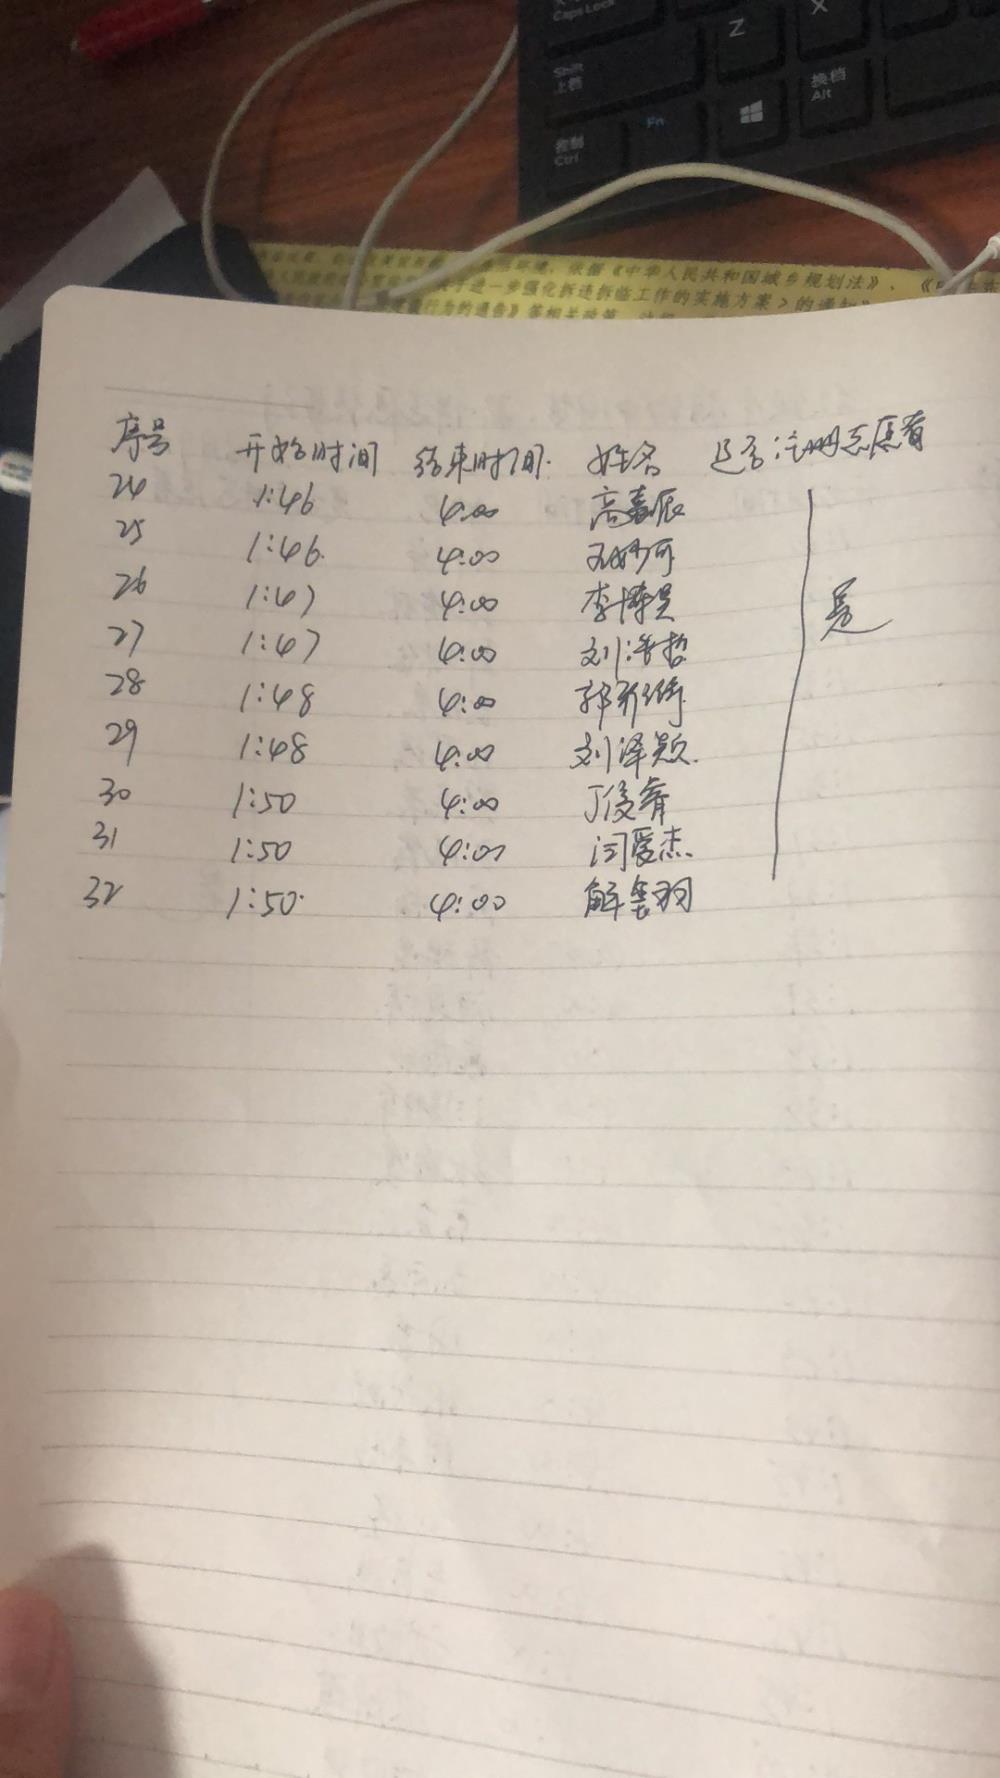 Caps Lock
Z
X
Shift
上档
换档
Alt
Fn
控制
Ctrl
环境,依据《中华人民共和国城乡规划法》、
进一步强化拆违拆临工作的实施方案>的通知》
行为的通告》等相关政策
序号 开始时间 结束时间 姓名 是否注册志愿者
24 1:46 4:00 高嘉辰
25 1:46 4:00
26 1:47 4:00 李博昊 是
27 1:47 4:00 刘浩哲
28 1:48 4:00
29 1:48 4:00 刘泽颖
30 1:50 4:00 丁俊睿
31 1:50 4:00 闫爱杰
32 1:50 4:00 解墨羽